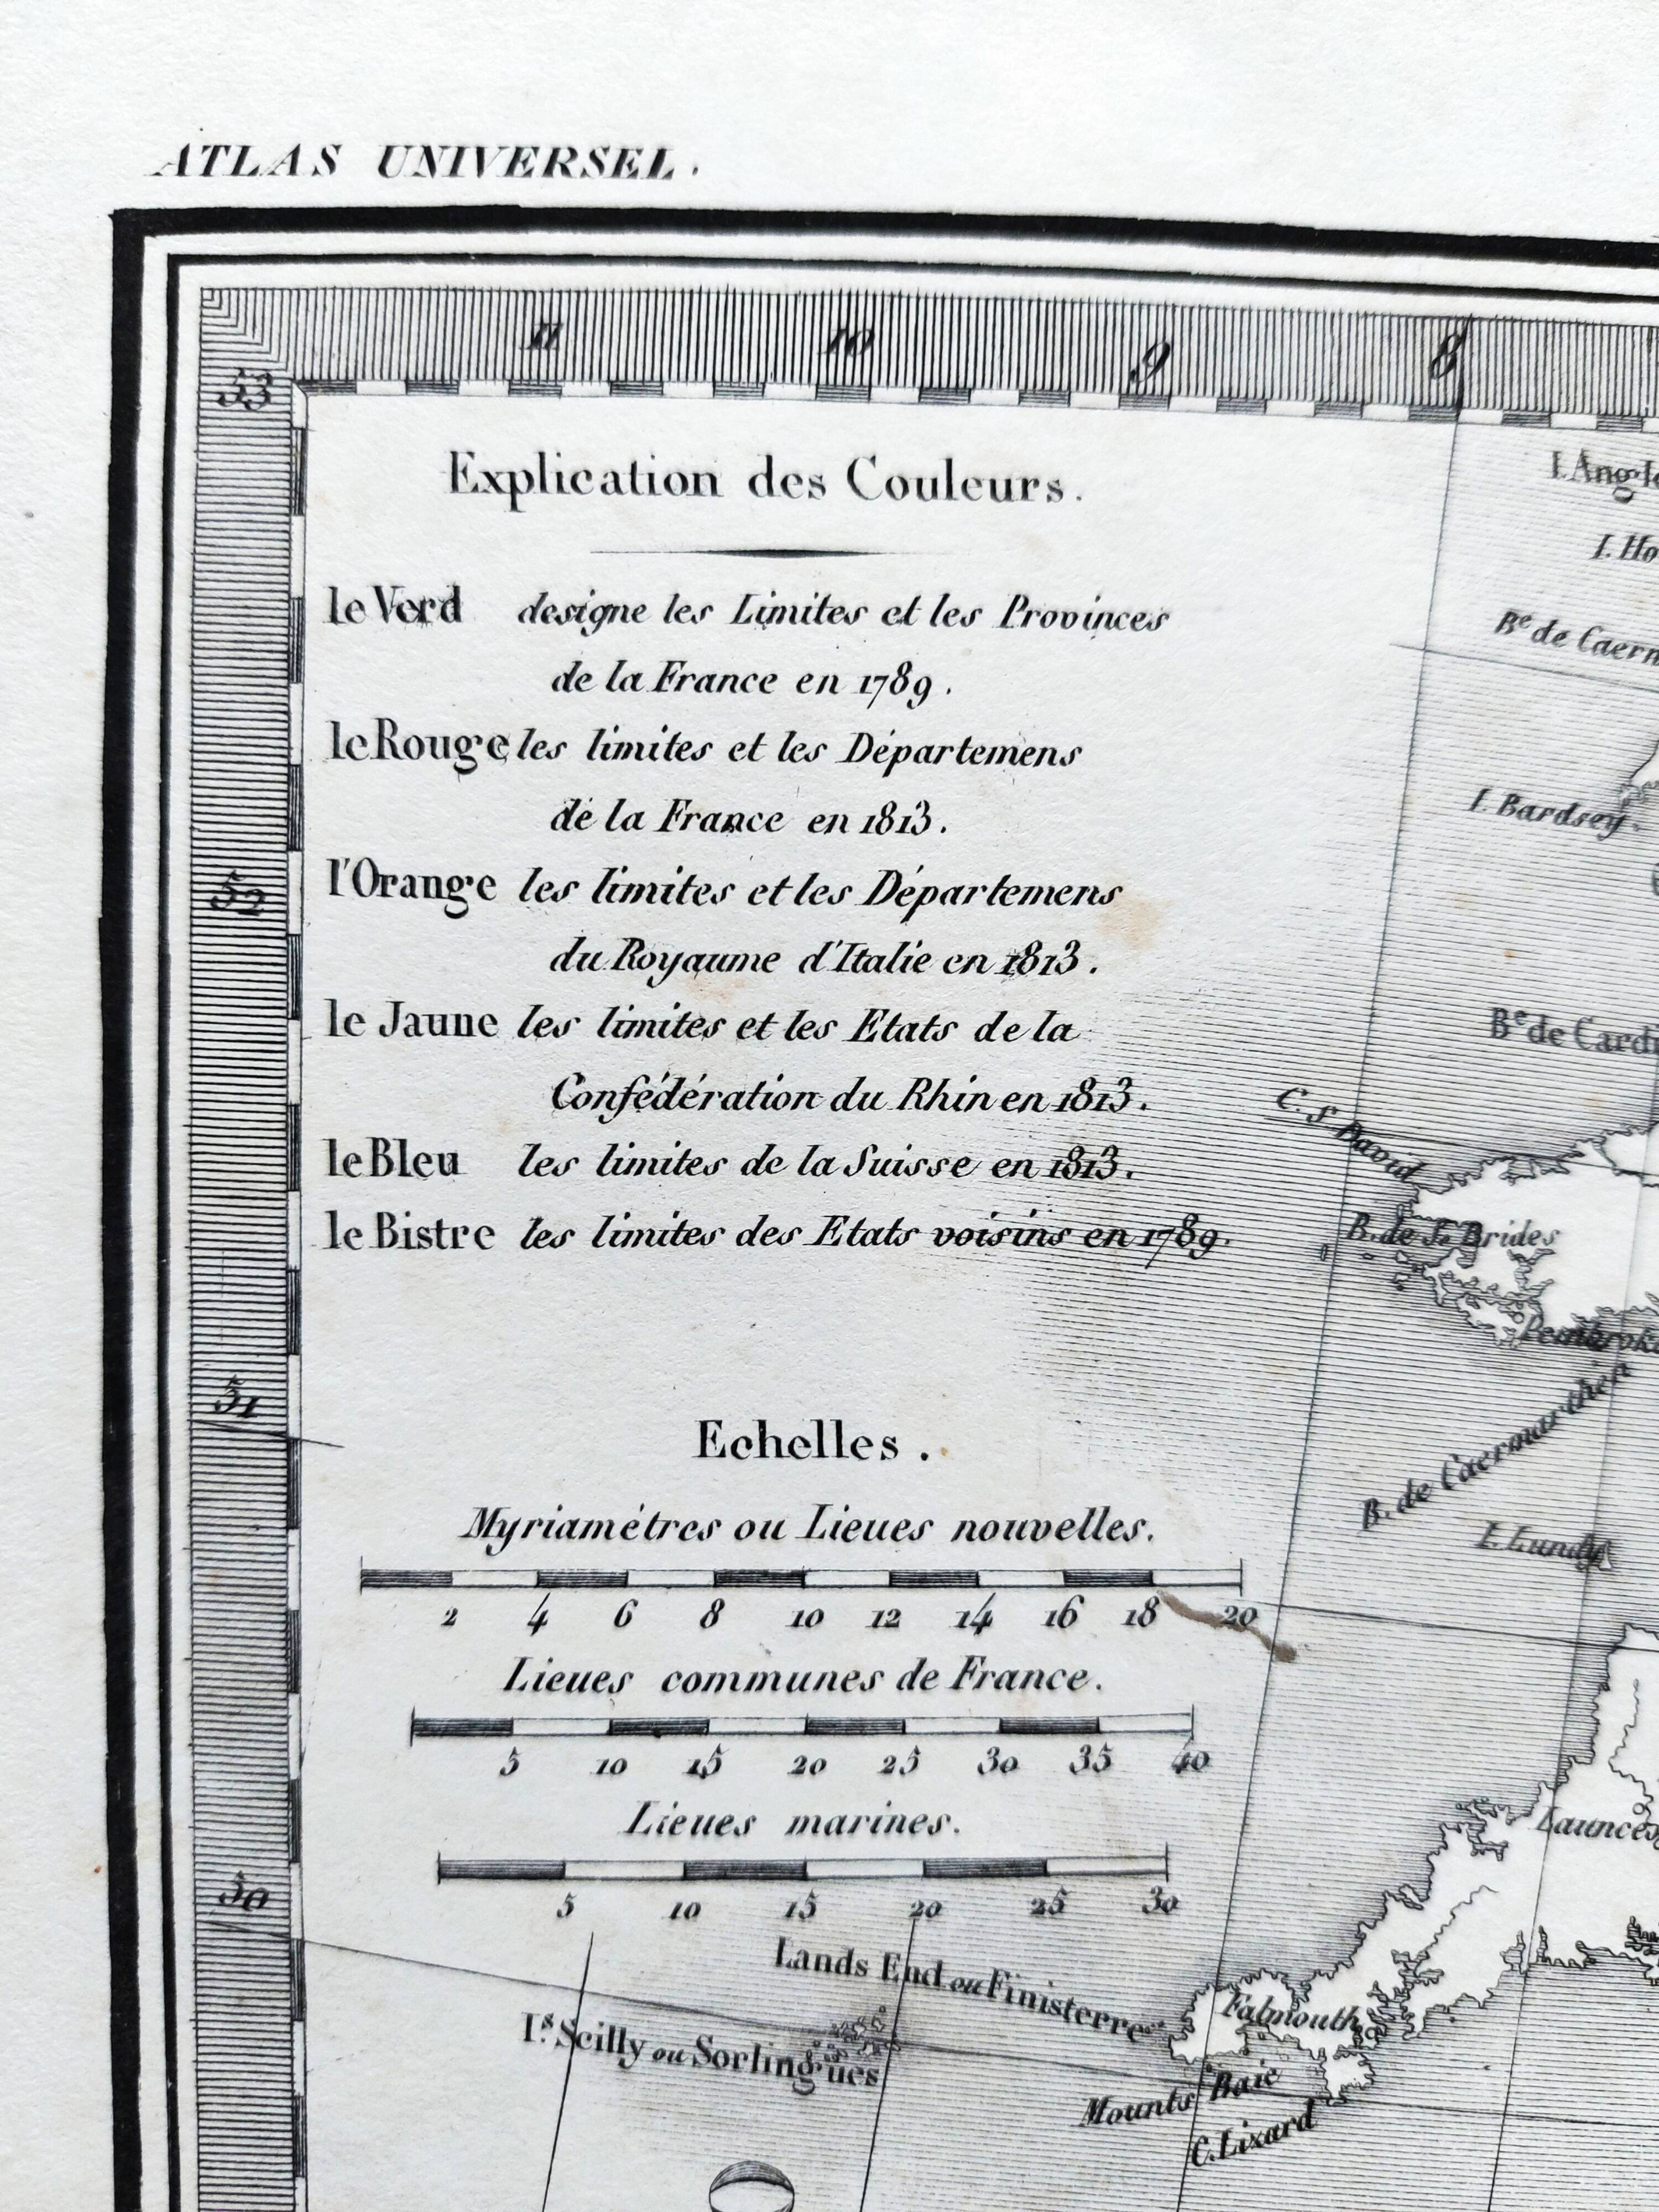 ATLAS UNIVERSEL.
11 10 9 8
53
Explication des Couleurs.
le Verd designe les Limites et les Provinces
de la France en 1789.
le Rouge les limites et les Départemens
de la France en 1813.
l'Orange les limites et les Départemens
du Royaume d'Italie en 1813.
le Jaune les limites et les Etats de la
Confédération du Rhin en 1813.
le Bleu les limites de la Suisse en 1813.
le Bistre les limites des Etats voisins en 1789.
52
51
50
I. Angle
I. Ho
Be de Caern
I. Bardsey
Be de Cardi
C. St. David
B. de St. Brides
Pembroke
B. de Caermarthen
I. Lundy
Echelles.
Myriamètres ou Lieues nouvelles.
2 4 6 8 10 12 14 16 18 20
Lieues communes de France.
5 10 15 20 25 30 35 40
Lieues marines.
5 10 15 20 25 30
Launces
Lands End ou Finisterre
Falmouth
Is. Scilly ou Sorlingues
Mounts Baie
C. Lizard